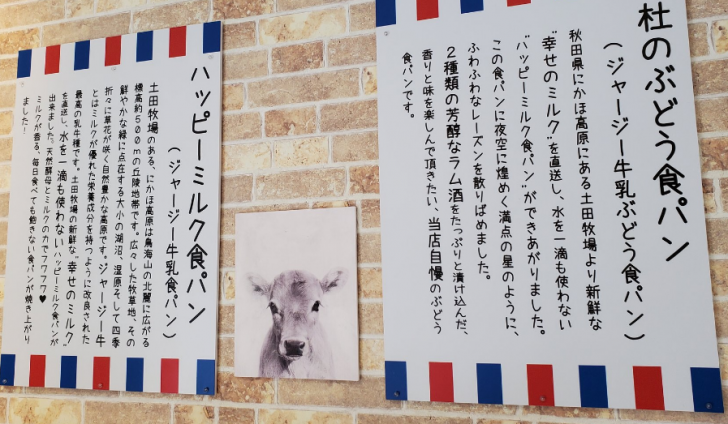 杜のぶどう食パン
（ジャージー牛乳ぶどう食パン）
秋田県にかほ高原にある土田牧場より新鮮な
"幸せのミルク"を直送し、水を一滴も使わない
"ハッピーミルク食パン"ができあがりました。
この食パンに夜空に煌めく満点の星のように、
ふわふわなレーズンを散りばめました。
2種類の芳醇なラム酒をたっぷりと漬け込んだ、
香りと味を楽しんで頂きたい、当店自慢のぶどう
食パンです。
ハッピーミルク食パン
（ジャージー牛乳食パン）
土田牧場のある、にかほ高原は鳥海山の北麓に広がる
標高約500mの丘陵地帯です。広々した牧草地、その
鮮やかな緑に点在する大小の湖沼、湿原そして四季
折々に草花が咲く自然豊かな高原です。ジャージー牛
とはミルクが優れた栄養成分を持つように改良された
最高の乳牛種です。土田牧場の新鮮な"幸せのミルク"
を直送し、水を一滴も使わないハッピーミルク食パンが
出来ました。天然酵母とミルクの力でフワフワ♥
ミルクが香る、毎日食べても飽きない食パンが焼き上がり
ました！